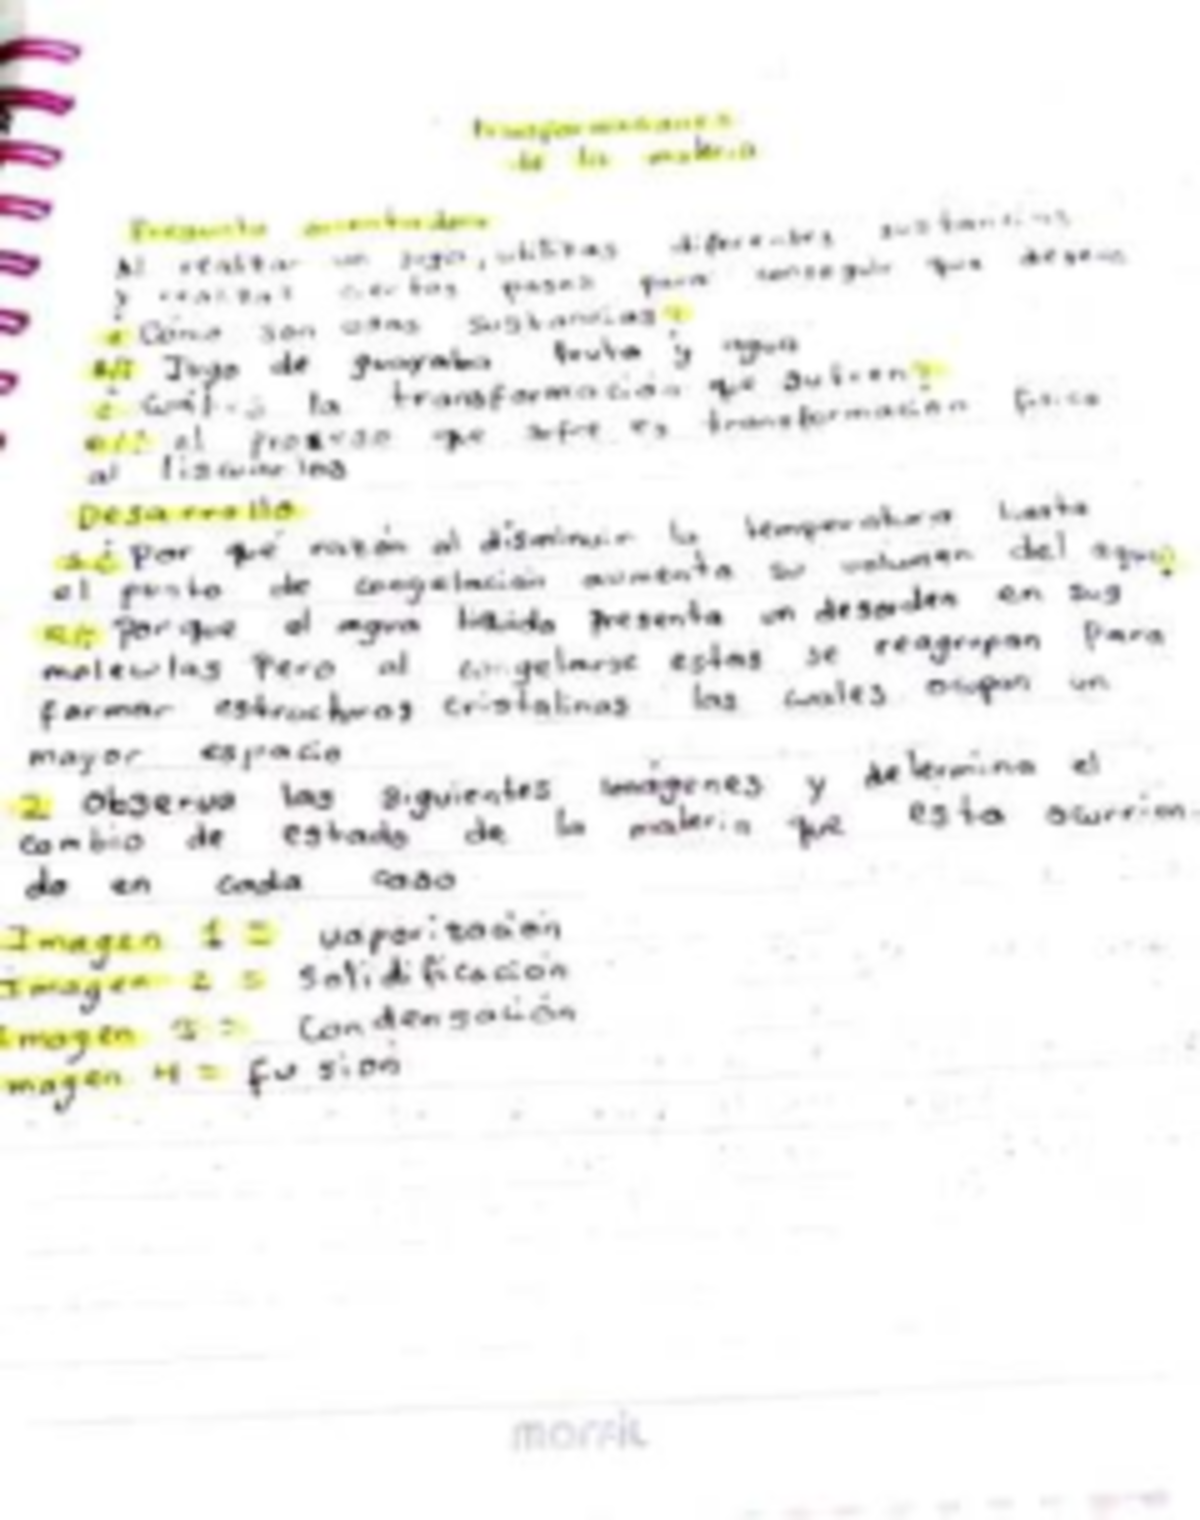 Transformaciones
de la materia
Pregunta orientadora
Al realizar un jugo, utilizas diferentes sustancias
y realizas ciertos pasos para conseguir que deseas
¿Cómo son esas sustancias?
R// Jugo de guayaba fruta y agua
¿Cuál es la transformación que sufren?
R// el proceso que sufre es transformación física
al licuarlas
Desarrollo
1 ¿Por qué razón al disminuir la temperatura hasta
el punto de congelación aumenta su volumen del agua?
R// Porque el agua liquida presenta un desorden en sus
moleculas Pero al congelarse estas se reagrupan Para
formar estructuras cristalinas las cuales ocupan un
mayor espacio
2 Observa las siguientes imágenes y determina el
cambio de estado de la materia que esta ocurrien-
do en cada caso
Imagen 1 = vaporización
Imagen 2 = Solidificación
Imagen 3 = Condensación
Imagen 4 = fusion